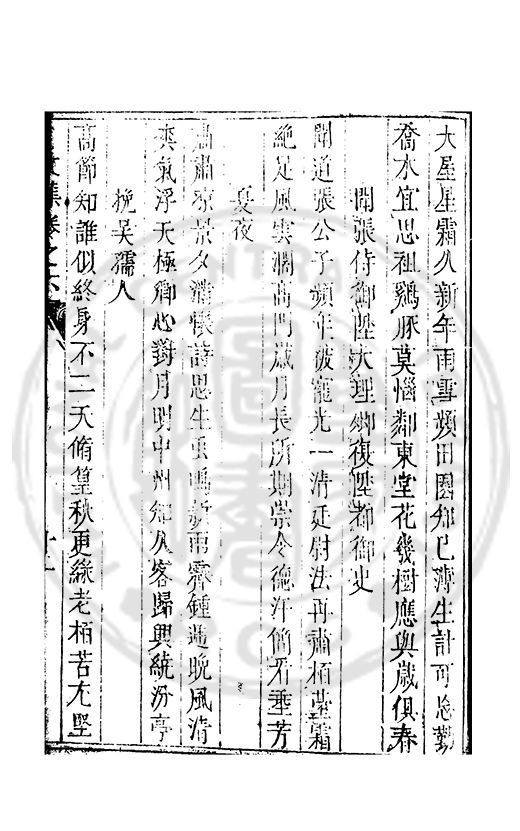 大星星霜久新年雨雪頻田園知已薄生計可忘勤
喬水宜思祖鷄豚莫惱鄰東堂花幾樹應與歲俱春
聞張侍御陞大理卿復陞都御史
聞道張公子頻年被寵光一清廷尉法再肅栢臺霜
絶足風雲濶高門歲月長所期崇令德汗簡看垂芳
夏夜
肅肅凉景夕潛懷詩思生虫鳴新雨霽鍾遞晚風清
爽氣浮天極鄉心對月明中州知久客歸興繞汾亭
挽吴孺人
高節知誰似終身不二天脩篁秋更綠老栢苦尤堅
文集卷之六
十一